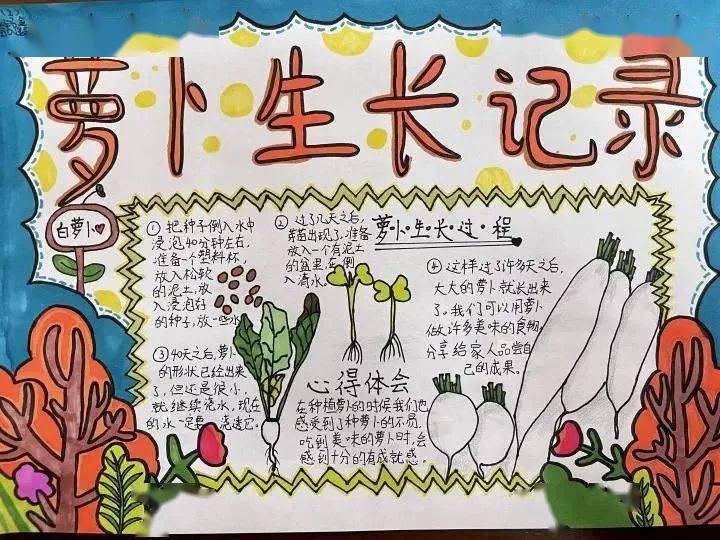 萝卜生长记录
白萝卜
萝卜·生·长·过·程
① 把种子倒入水中
浸泡40分钟左右.
准备一个塑料杯,
放入松软
的泥土,放
入浸泡好
的种子,放一些水
② 过了几天之后,
芽苗出现了,准备
放入一个有泥土
的盆里,在倒
入清水。
③ 40天之后,萝卜
的形状已经出来
了,但还是很小,
就继续浇水,现在
的水一定要浇透它。
④ 这样过了许多天之后,
大大的萝卜就长出来
了。我们可以用萝卜
做许多美味的食物,
分享给家人品尝自
己的成果。
心得体会
在种植萝卜的时候我们也
感受到了种萝卜的不易,
吃到美味的萝卜时,会
感到十分的有成就感。